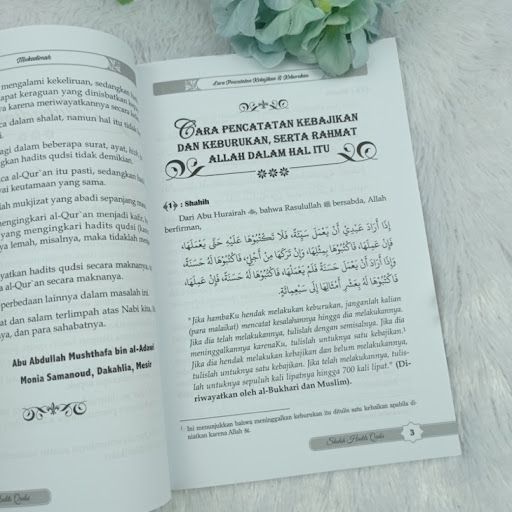 Mukadimah
mengalami kekeliruan, sedangkan
apat keraguan yang dinisbatkan
a karena meriwayatkannya secara
ca dalam shalat, namun hal itu tidak
agi dalam beberapa surat, ayat,
gkan hadits qudsi tidak demikian.
ca al-Qur`an itu pasti, sedangkan
ai keutamaan yang sama.
lah mukjizat yang abadi sepanjang
engingkari al-Qur`an menjadi kafir,
yang mengingkari hadits qudsi
ya lemah, misalnya, maka tidaklah
yatkan hadits qudsi secara makna
a al-Qur`an secara maknanya.
perbedaan lainnya dalam masalah ini.
at dan salam terlimpah atas Nabi kita,
ya, dan para sahabatnya.
Abu Abdullah Mushthafa bin al-Adawi
Monia Samanoud, Dakahlia, Mesir
Cara Pencatatan Kebajikan & Keburukan
CARA PENCATATAN KEBAJIKAN
DAN KEBURUKAN, SERTA RAHMAT
ALLAH DALAM HAL ITU
﴾1﴿ : Shahih
Dari Abu Hurairah ﷺ, bahwa Rasulullah ﷺ bersabda, Allah
berfirman,
إِذَا أَرَادَ عَبْدِيْ أَنْ يَعْمَلَ سَيِّئَةً، فَلَا تَكْتُبُوْهَا عَلَيْهِ حَتَّى يَعْمَلَهَا،
فَإِنْ عَمِلَهَا، فَاكْتُبُوْهَا بِمِثْلِهَا، وَإِنْ تَرَكَهَا مِنْ أَجْلِيْ، فَاكْتُبُوْهَا لَهُ حَسَنَةً،
وَإِذَا أَرَادَ أَنْ يَعْمَلَ حَسَنَةً فَلَمْ يَعْمَلْهَا، فَاكْتُبُوْهَا لَهُ حَسَنَةً، فَإِنْ عَمِلَهَا،
فَاكْتُبُوْهَا لَهُ بِعَشْرِ أَمْثَالِهَا إِلَى سَبْعِمِائَةٍ.
"Jika hambaKu hendak melakukan keburukan, janganlah kalian
(para malaikat) mencatat kesalahannya hingga dia melakukannya.
Jika dia telah melakukannya, tulislah dengan semisalnya. Jika dia
meninggalkannya karenaKu, tulislah untuknya satu kebaikan.¹
Jika dia hendak melakukan kebajikan dan belum melakukannya,
tulislah untuknya satu kebajikan. Jika telah melakukannya, tulis-
lah untuknya sepuluh kali lipatnya hingga 700 kali lipat." (Di-
riwayatkan oleh al-Bukhari dan Muslim).
¹ Ini menunjukkan bahwa meninggalkan keburukan itu ditulis satu kebaikan apabila di-
niatkan karena Allah
Shahih Hadits Qudsi
3